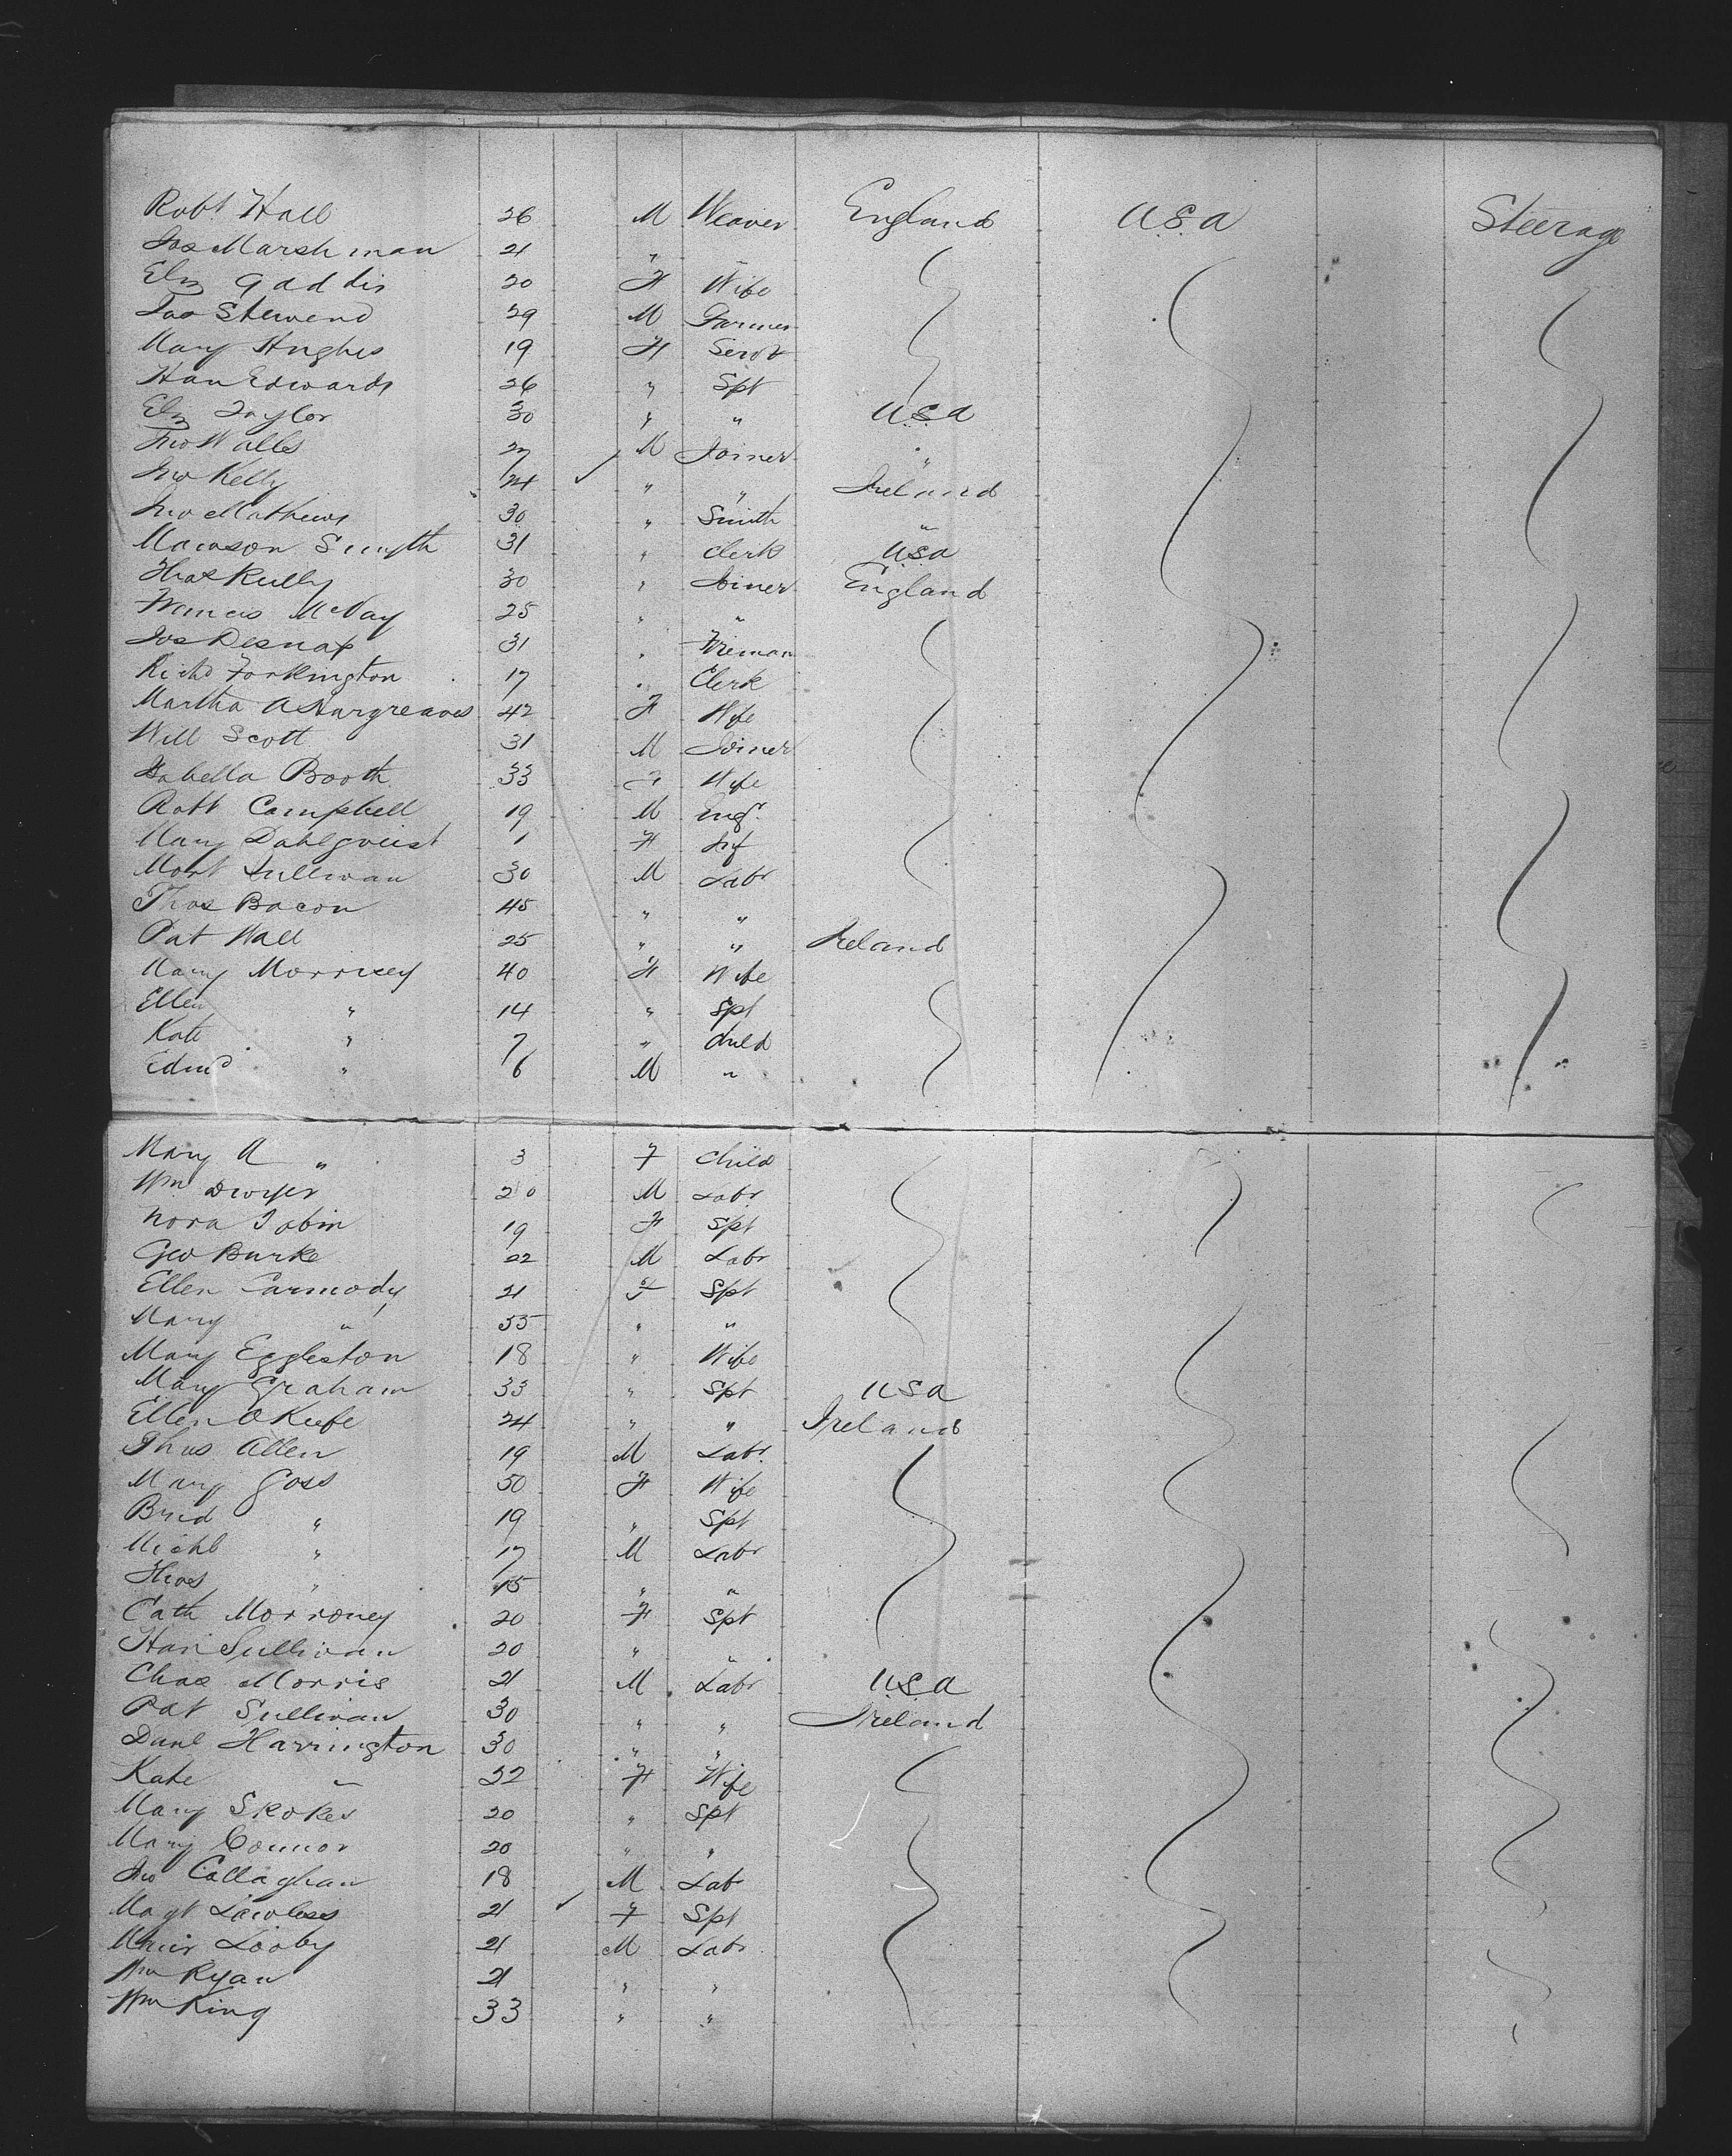 Robt Hall 26 M Weaver England USA Steerage
Jas Marshman 21 "
Elz Gaddis 20 F Wife
Jas 29 M Farmer
Mary Hughes 19 F Servt
Han Edwards 26 " Spt
Elz Taylor 30 " " USA
Jno Walls 27 M Joiner "
Jno Kelly 24 " " Ireland
Jno Mathews 30 " Smith "
Mawson Smyth 31 " Clerk USA
Thos Kelly 30 " Joiner England
Francis McVay 25 " "
Jos 31 " Fireman
Richd Forkington 17 " Clerk
Martha A Hargreaves 42 F Wife
Will Scott 31 M Joiner
Isabella Booth 33 F Wife
Robt Campbell 19 M Engr
Mary Dahlqvist 1 F Inf
Mort Sullivan 30 M Labr
Thos Bacon 45 " "
Pat Wall 25 " " Ireland
Mary Morrisey 40 F Wife
Ellen " 14 " Spt
Kate " 7 " Child
Edmd " 6 M "
Mary A " 3 F Child
Wm Dwyer 20 M Labr
Nora Tobin 19 F Spt
Geo Burke 22 M Labr
Ellen Carmody 21 F Spt
Mary " 55 " "
Mary Eggleston 18 " Wife
Mary Graham 33 " Spt USA
Ellen OKeefe 24 " " Ireland
Thos Allen 19 M Labr
Mary Goss 50 F Wife
Brid " 19 " Spt
Michl " 17 M Labr
Thos " 15 " "
Cath Morroney 20 F Spt
Han Sullivan 20 " "
Chas Morris 21 M Labr USA
Pat Sullivan 30 " " Ireland
Danl Harrington 30 " "
Kate " 22 F Wife
Mary Skokes 20 " Spt
Mary Connor 20 " "
Jno Callaghan 18 M Labr
Magt Lawless 21 F Spt
Looby 21 M Labr
Wm Ryan 21 " "
Wm King 33 " "